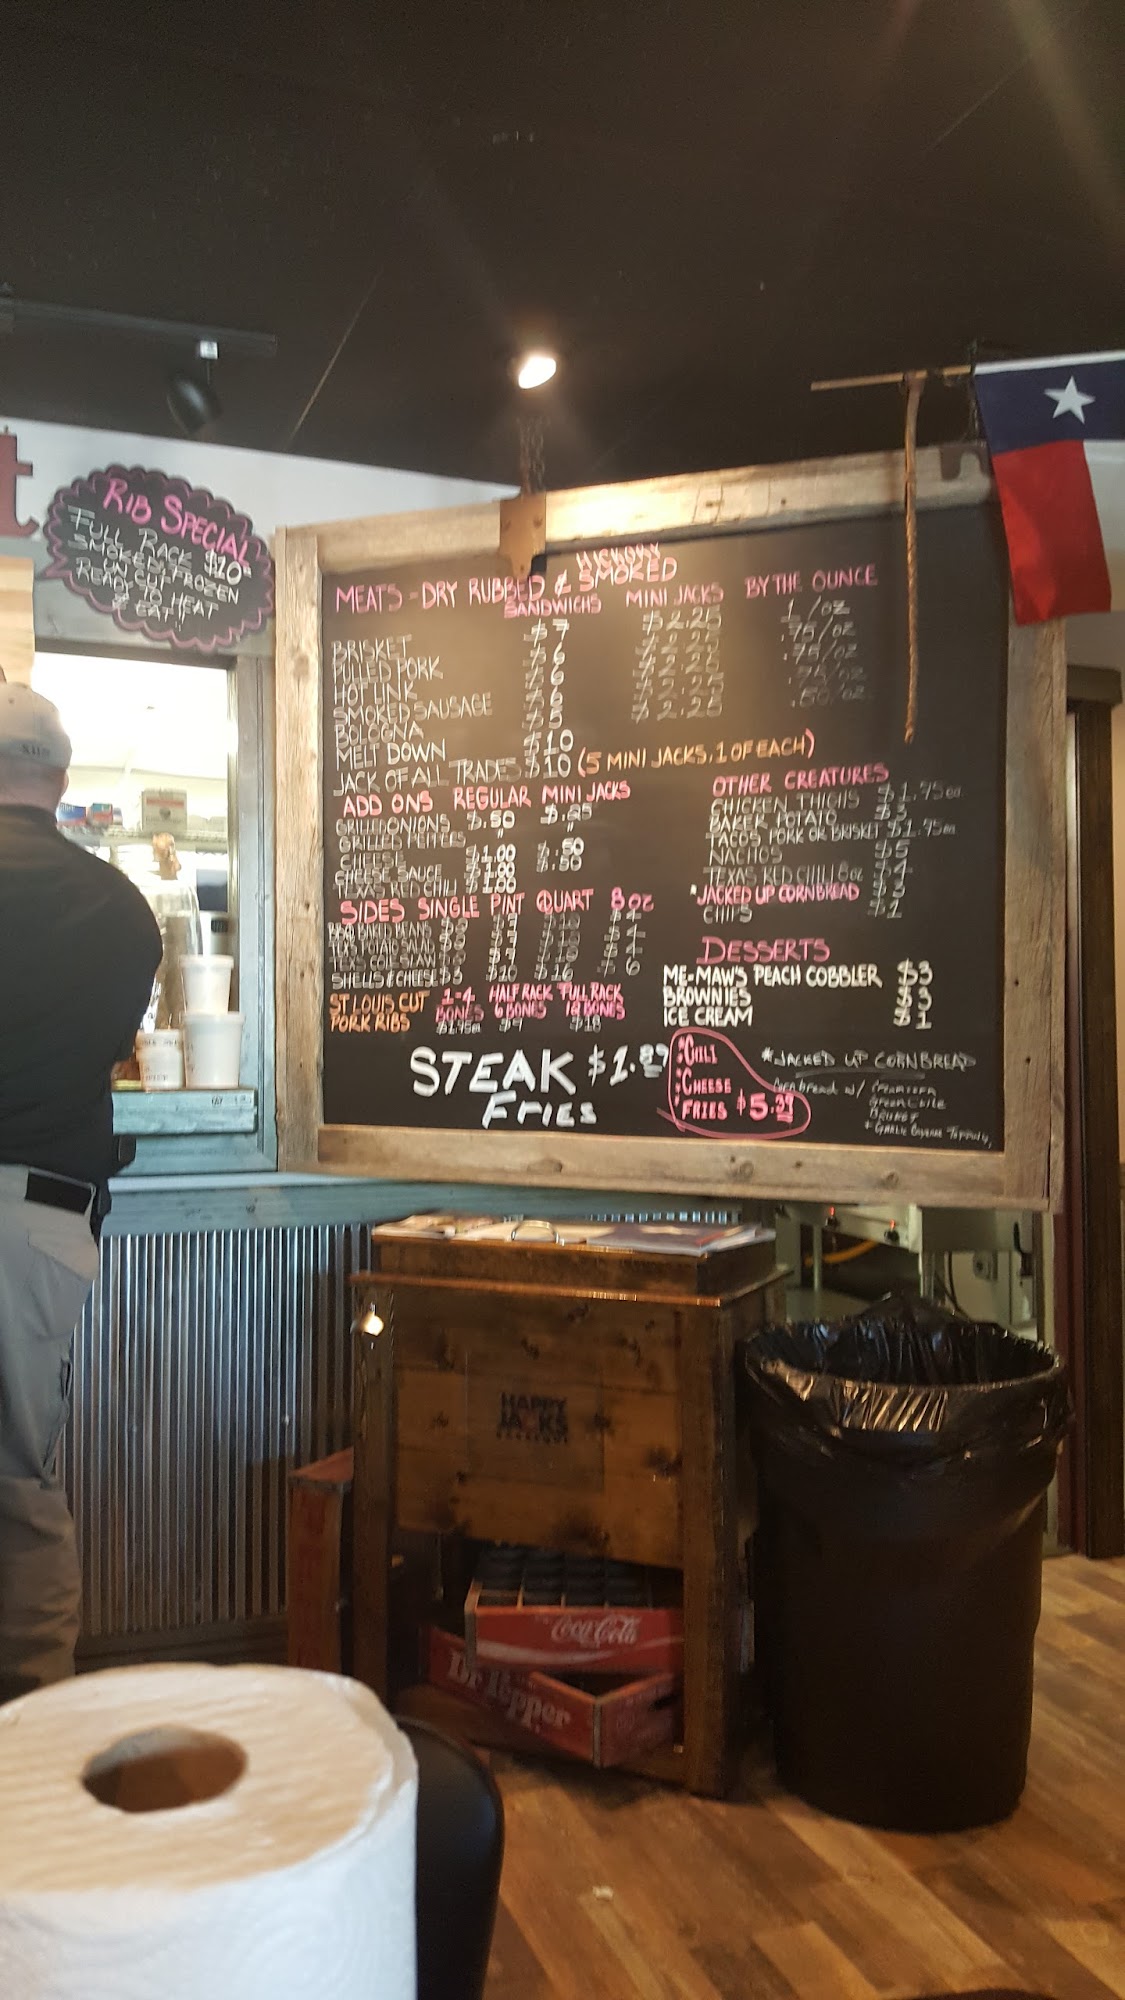 t
RIB SPECIAL
FULL RACK $10
SMOKED & FROZEN
UN CUT
READY TO HEAT
& EAT!!
HICKORY
MEATS - DRY RUBBED & SMOKED
SANDWICHS MINI JACKS BY THE OUNCE
BRISKET $7 $2.25 1/oz
PULLED PORK $6 $2.25 .75/oz
HOT LINK $6 $2.25 .75/oz
SMOKED SAUSAGE $6 $2.25 .75/oz
BOLOGNA $5 $2.25 .50/oz
MELT DOWN $10
JACK OF ALL TRADES $10 (5 MINI JACKS, 1 OF EACH)
ADD ONS REGULAR MINI JACKS
GRILLED ONIONS $.50 $.25
GRILLED PEPPERS " "
CHEESE $1.00 $.50
CHEESE SAUCE $1.00 $.50
TEXAS RED CHILI $1.00
SIDES SINGLE PINT QUART 8oz
BBQ BAKED BEANS
TEXAS POTATO SALAD
TEXAS COLE SLAW
SHELLS & CHEESE $3 $10 $16 $6
ST LOUIS CUT 1-4 HALF RACK FULL RACK
PORK RIBS BONES 6 BONES 12 BONES
$1.95ea $9 $18
STEAK $1.89
FRIES
OTHER CREATURES
CHICKEN THIGHS $1.75ea.
BAKER POTATO
TACOS PORK OR BRISKET $1.95ea
NACHOS $5
TEXAS RED CHILI 8oz $4
*JACKED UP CORNBREAD
CHIPS
DESSERTS
ME-MAW'S PEACH COBBLER $3
BROWNIES $3
ICE CREAM $1
*CHILI
*CHEESE
*FRIES $5.39
*JACKED UP CORNBREAD
Cornbread w/
Green Chile
Brisket
+ Garlic
HAPPY
JACKS
Coca-Cola
Dr Pepper